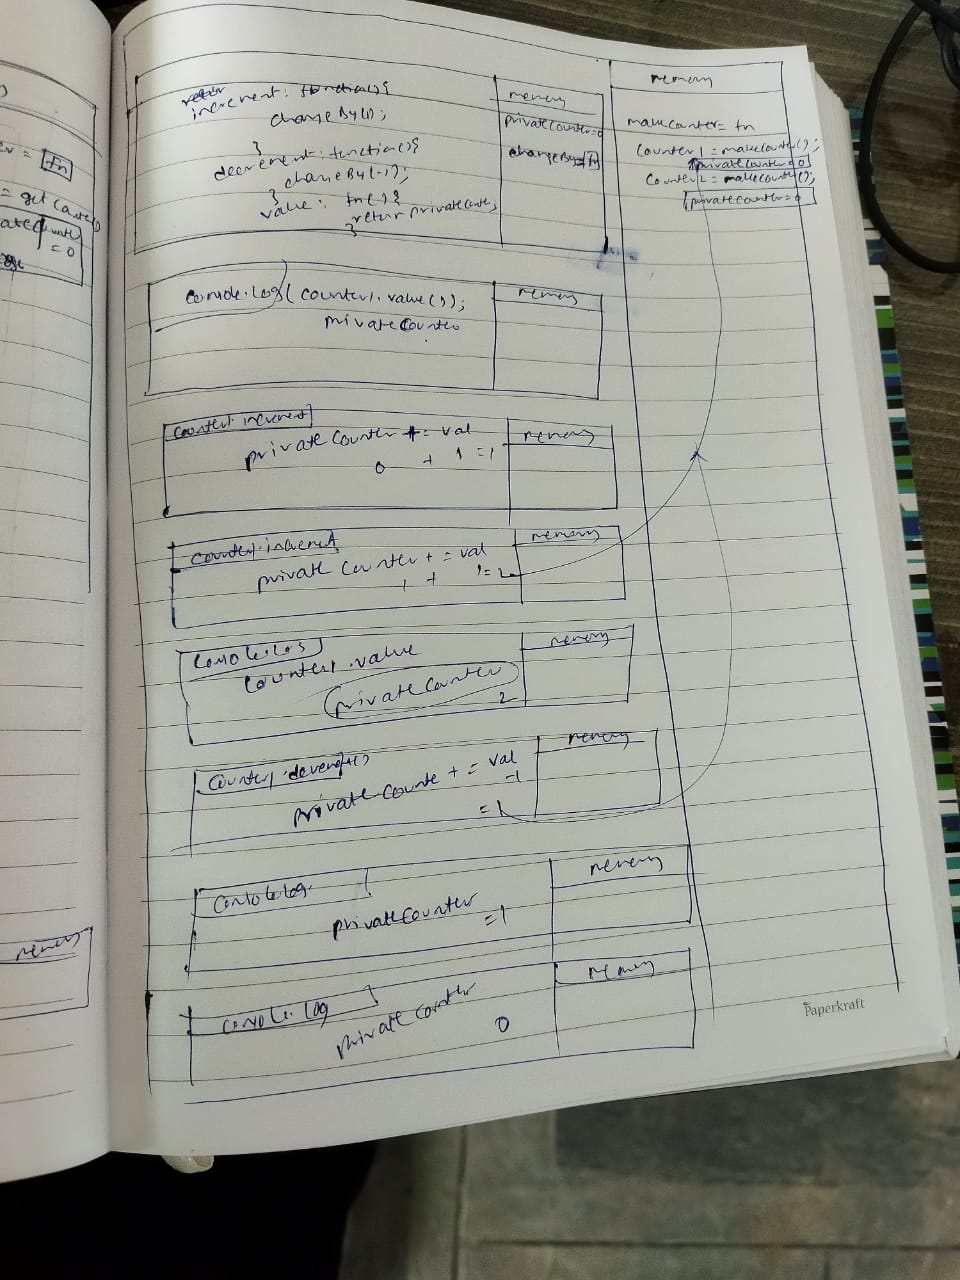 er = fn
= get Counter()
= 0
memory
return
increment: function(){
changeBy(1);
}
decrement: function(){
changeBy(-1);
}
value: fn(){
return privateCounter;
}
memory
privateCounter=0
changeBy=fn
memory
makeCounter= fn
Counter1 = makeCounter();
privateCounter=0
Counter2 = makeCounter();
privateCounter=0
console.log( counter1.value());
privateCounter
memory
counter1.increment
privateCounter += val
0 + 1 =1
memory
counter1.increment
private Counter + = val
1 + 1=2
memory
console.log
counter1.value
privateCounter
2
memory
Counter1
private Counte + = val
-1
=1
memory
console.log.
privateCounter
=1
memory
console.log
private counter
0
memory
Paperkraft